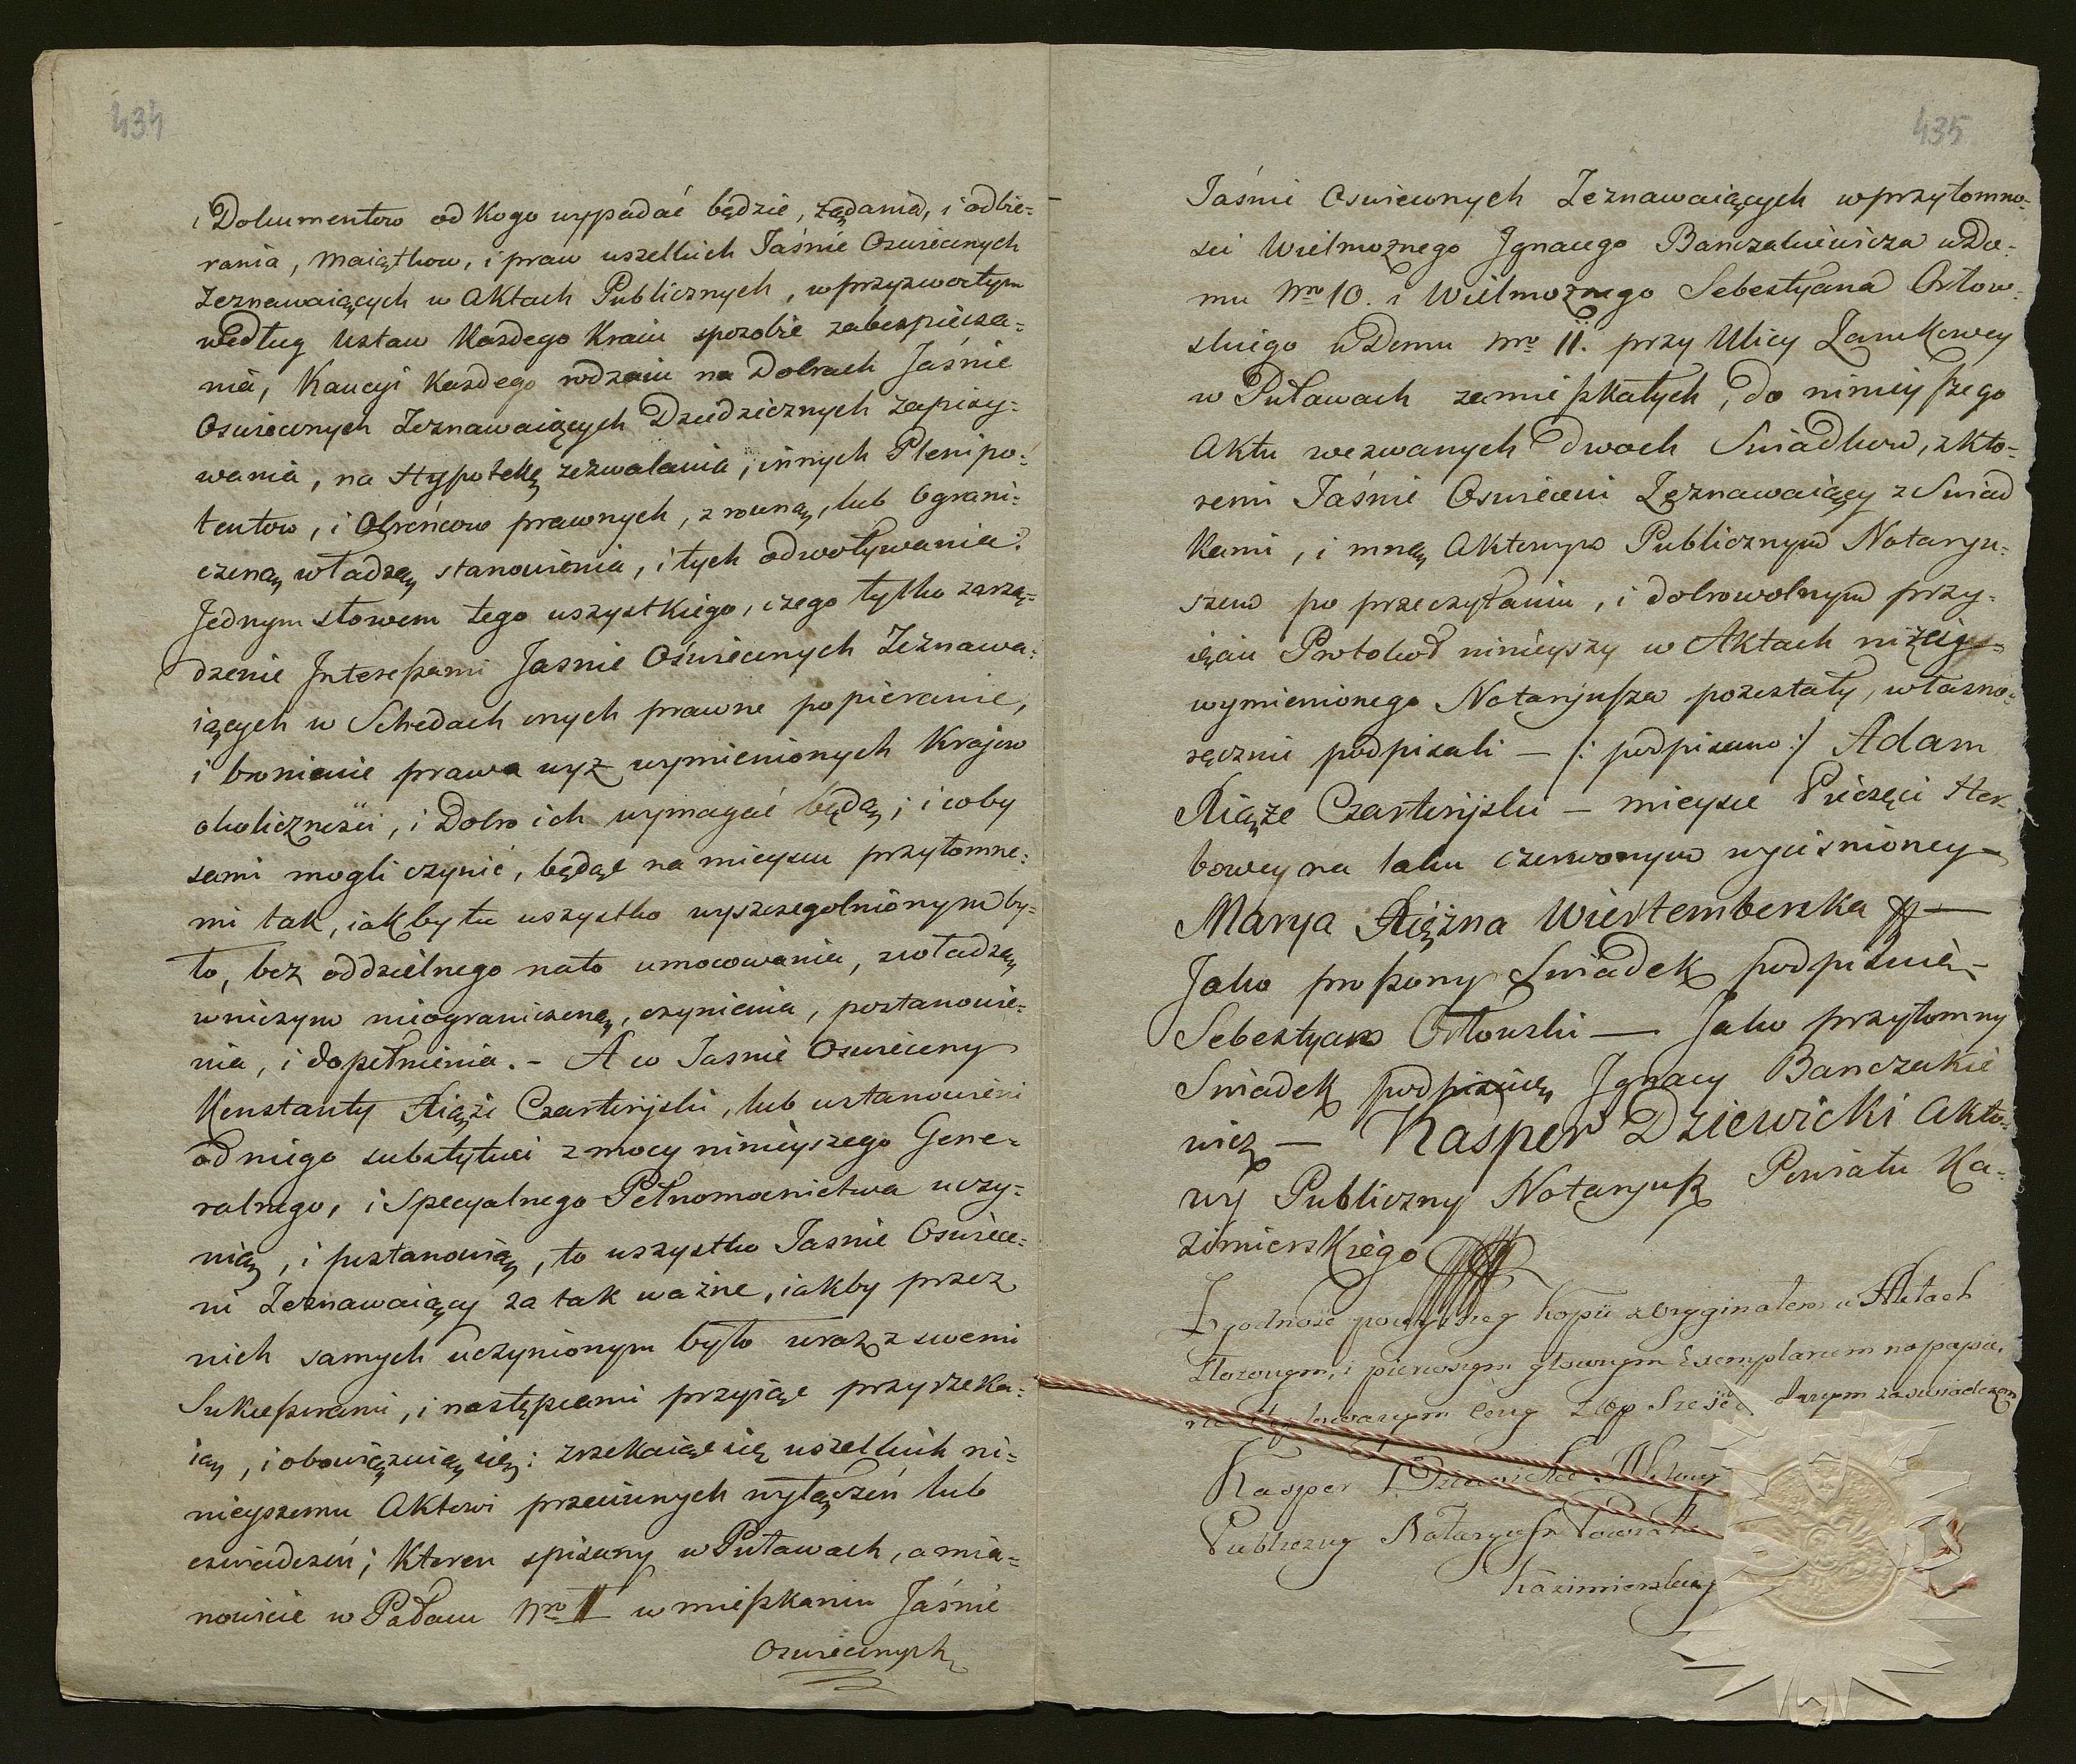 434
i Dokumentow od kogo wypadać będzie, żądania, i odbie-
rania, maiątkow, i praw wszelkich Jaśnie Oswieconych
Zeznawaiących w Aktach Publicznych, w przyzwoitym
według Ustaw każdego Kraiu sposobie zabespiecza-
nia, Kaucyi każdego rodzaiu na Dobrach Jaśnie
Oswieconych Zeznawaiących Dziedzicznych zapisy-
wania, na Hypotekę zezwalania, innych Plenipo-
tentow, i Obrońcow prawnych, z rowną, lub Ograni-
czoną władzą stanowienia, i tych odwoływania:
Jednym słowem tego wszystkiego, czego tylko zarzą-
dzenie Interessami Jasnie Oświeconych Zeznawa-
iących w Schedach onych prawne popieranie,
i bronienie prawa wyż wymienionych Krajow
okoliczności, i Dobro ich wymagać będą; i coby
sami mogli czynić, będąc na mieyscu przytomne-
mi tak, iakby tu wszystko wyszczegolnionym by-
ło, bez oddzielnego nato umocowania, z władzą
w niczym nieograniczoną, czynienia, postanowie-
nia, i dopełnienia. - A co Jasnie Oswiecony
Konstanty Xiąże Czartoryski, lub ustanowieni
od niego substytuci z mocy ninieyszego Gene-
ralnego, i Specyalnego Pełnomocnictwa uczy-
nią, i postanowią, to wszystko Jasnie Oswiece-
ni Zeznawaiący za tak ważne, iakby przez
nich samych uczynionym było wraz z swemi
Sukcessorami, i następcami przyiąć przyrzeka-
ią, i obowiązuią się: zrzekaiąc się wszelkich ni-
nieyszemu Aktowi przeciwnych wyłączeń lub
oswiadczeń; Ktoren spisany w Puławach, a mia-
nowicie w Pałacu Nro II w mieszkaniu Jaśnie
Oswieconych
435
Jaśnie Oswieconych Zeznawaiących w przytomno-
sci Wielmożnego Ignacego Banczakiewicza w Do-
mu Nro 10. i Wielmożnego Sebestyana Orłow-
skiego w Domu Nro 11. przy Ulicy Zamkowey
w Puławach zamieszkałych, do ninieyszego
Aktu wezwanych dwoch Swiadkow, z kto-
remi Jaśnie Oswieceni Zeznawaiący z Swiad
kami, i mną Aktowym Publicznym Notaryu-
szem po przeczytaniu, i dobrowolnym przy-
ięciu Protokoł ninieyszy w Aktach niżey
wymienionego Notaryusza pozostały, własno-
ręcznie podpisali — /: podpisano :/ Adam
Xiąże Czartoryski — mieysce Pieczęci Her-
bowey na laku czerwonym wyciśnioney —
Marya Xiężna Wirtemberska —
Jako proszony Swiadek podpisuie —
Sebestyan Orłowski — Jako przytomny
Swiadek podpisuię Ignacy Banczakie
wicz — Kasper Dziewicki Akto-
wy Publiczny Notaryusz Powiatu Ka-
zimierskiego
Zgodność powyższey kopii z oryginałem w Aktach
złożonym, i pierwszym głownym Exemplarzem na papie-
rze stęplowanym ceny Złop Sześć danym zaswiadczam
Kasper Dziewicki Aktowy
Publiczny Notaryusz Powiatu
Kazimierskiego